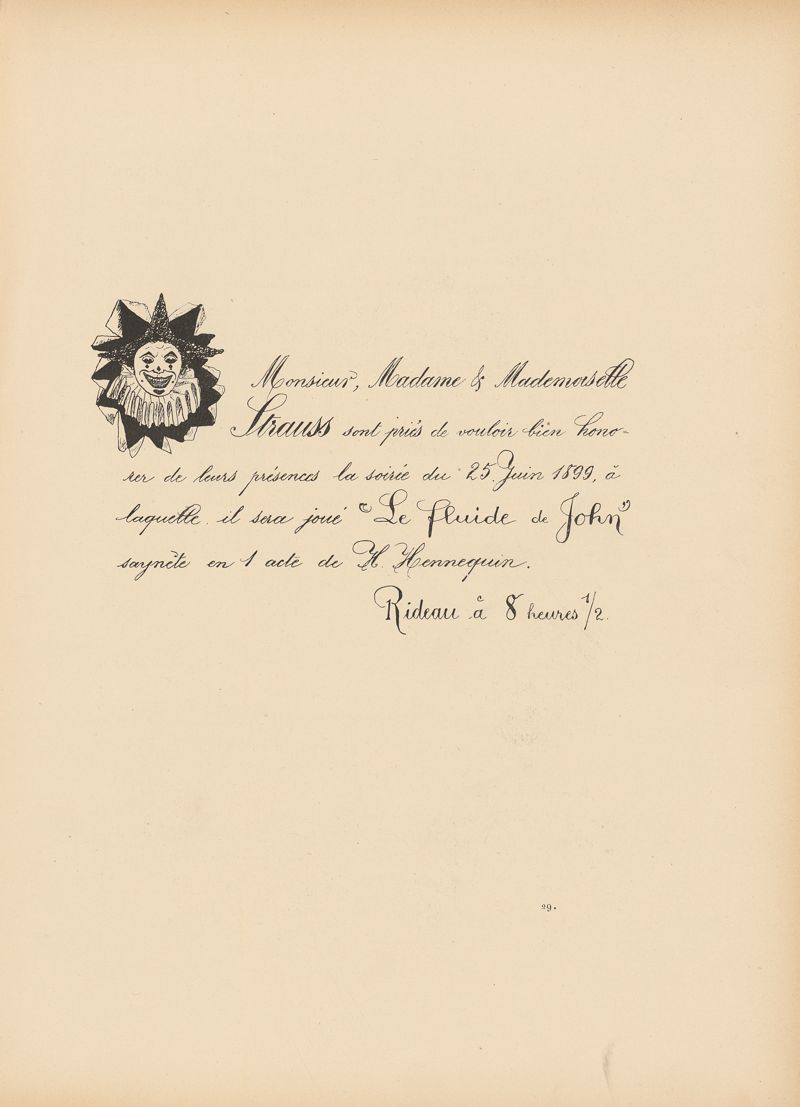 Monsieur, Madame & Mademoiselle
Strauss sont priés de vouloir bien hono-
rer de leurs présences la soirée du 25 Juin 1899, à
laquelle il sera joué "Le fluide de John"
saynète en 1 acte de H. Hennequin.
Rideau à 8 heures 1/2.
29.